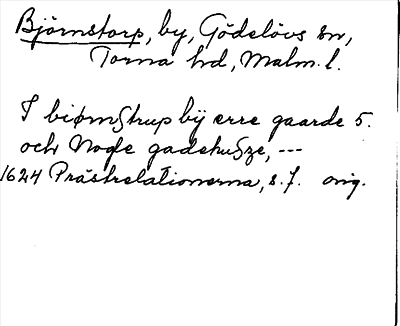 Björnstorp, by, Gödelövs sn,
Torna hd, Malm. l.
I biørn§trup bÿ erre gaarde 5.
och Nogle gadehu§ze, ---
1624 Prästrelationerna, s. 7. orig.